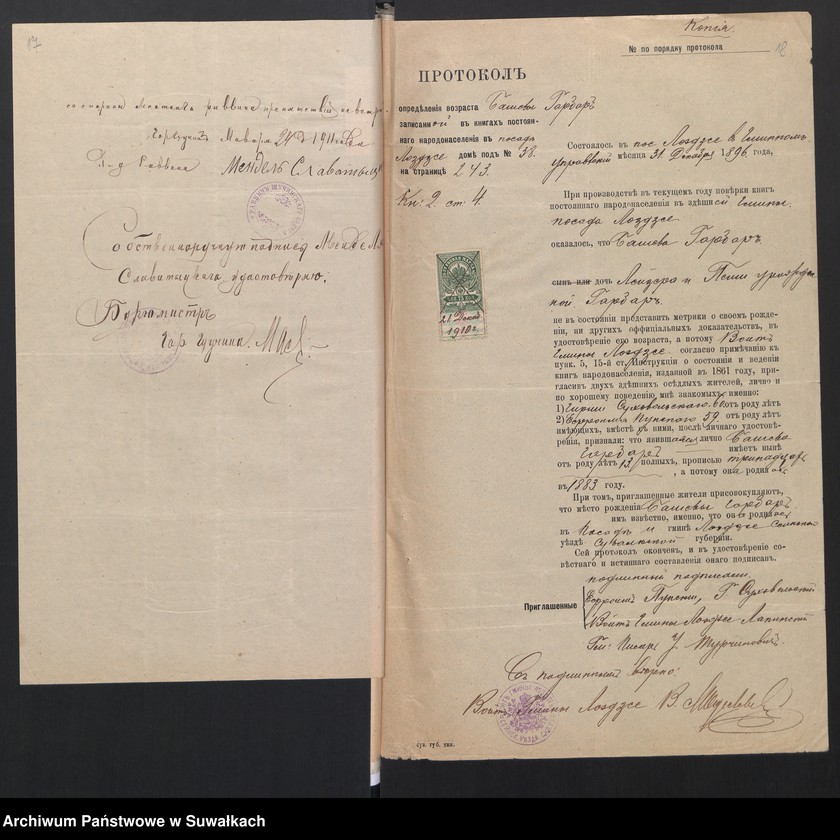 17
со стороны
раввина препятствий не встре-
24 д. 1911 года
Мендель Славатыцк
Собственноручную подпись Мендел
Славатыцкаго удостовѣряю:
Бургомистръ
гор.
Копія.
№ по порядку протокола
18
ПРОТОКОЛЪ
опредѣленія возраста Башевы Гарбаръ
записанной въ книгахъ постоян-
наго народонаселенія въ посадѣ
Лоздзее домѣ подъ № 38.
на страницѣ 243.
Кн: 2. ст: 4.
21 Декаб
1910 г.
Состоялось въ пос Лоздзее въ Гминномъ
Управленіи мѣсяца 31 Декабря 1896 года,
При производствѣ въ текущемъ году повѣрки книгъ
постояннаго народонаселенія въ здѣшней Гмины,
посада Лоздзее
оказалось, что Башева Гарбаръ
сынъ или дочь Лейзера и Песши урожден
ной Гарбаръ
не въ состояніи представить метрики о своемъ рожде-
ніи, ни другихъ оффиціальныхъ доказательствъ, въ
удостовѣреніе его возраста, а потому Войтъ
Гмины Лоздзее согласно примѣчанію къ
пунк. 5, 15-й ст. Инструкціи о состояніи и веденіи
книгъ народонаселенія, изданной въ 1861 году, при-
гласивъ двухъ здѣшнихъ осѣдлыхъ жителей, лично и
по хорошему поведенію мнѣ знакомыхъ именно:
1) Сухвольскаго 60 отъ роду лѣтъ
2) Ефроима Пунскаго 59. отъ роду лѣтъ
имѣющихъ, вмѣстѣ съ ними, послѣ личнаго удостовѣ-
ренія, признали: что явившаяся лично Башева
Гарбаръ имѣетъ нынѣ
отъ роду лѣтъ 13 полныхъ, прописью тринадцать
, а потому она родилась
въ 1883 году.
При томъ, приглашенные жители присовокупляютъ,
что мѣсто рожденія Башевы Гарбаръ
имъ извѣстно, именно, что она родилась
въ Посадѣ и гминѣ Лоздзее Сейнскаго
уѣздѣ Сувалкской губерніи.
Сей протоколъ оконченъ, и въ удостовѣреніе со-
вѣстнаго и истиннаго составленія онаго подписанъ.
подлинный подписали:
Приглашенные
Ефроимъ Пунскій, Г Сухвольскій
Войтъ Гмины Лоздзее
Гм: Писарь
Съ подлиннымъ вѣрно:
Войтъ Гмины Лоздзее В.
сув. губ. тип.
Archiwum Państwowe w Suwałkach